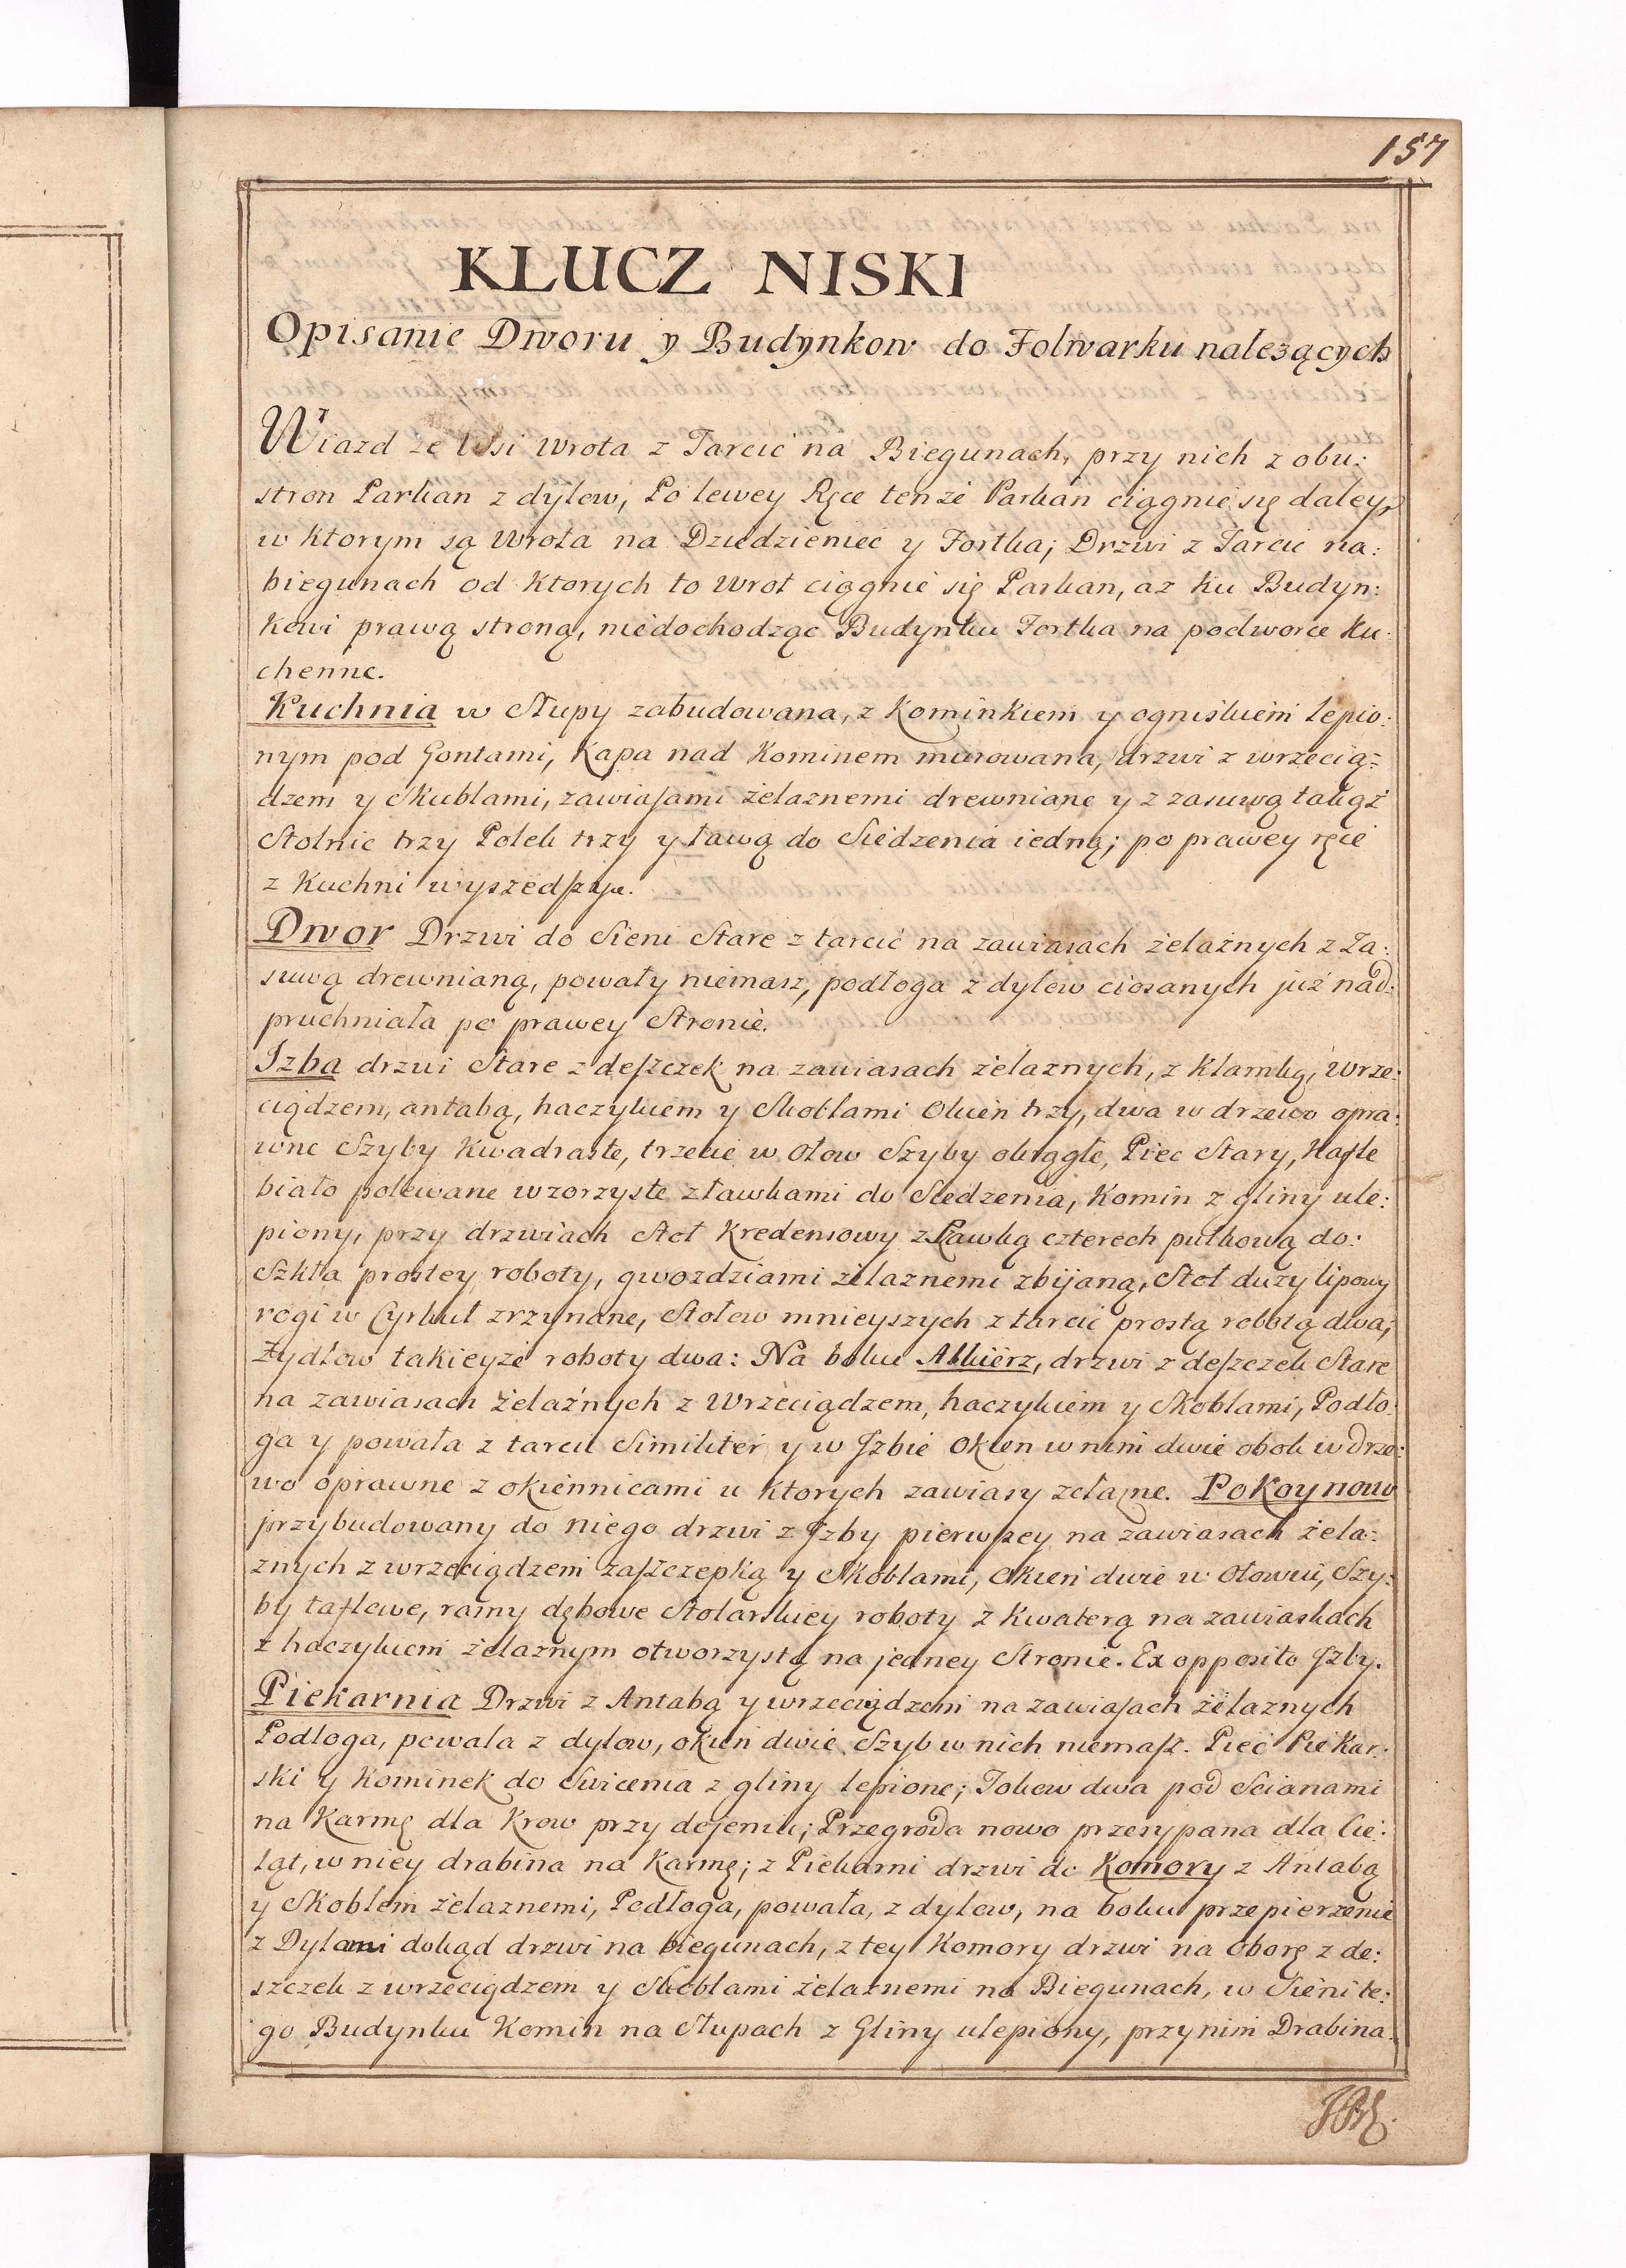 157
KLUCZ NISKI
Opisanie Dworu y Budynkow do Folwarku należących
Wiazd ze Wsi wrota z Tarcic na Biegunach, przy nich z obu:
stron Parkan z dylow, Po lewey Ręce tenże Parkan ciągnie się daley,
w ktorym są Wrota na Dziedzieniec y Fortka; Drzwi z Tarcic na:
biegunach od ktorych to wrot ciągnie się Parkan, az ku Budyn:
kowi prawą stroną, niedochodząc Budynku Fortka na podworce Ku:
chenne.
Kuchnia w Słupy zabudowana, z Kominkiem y ogniskiem lepio:
nym pod Gontami, Kapa nad Kominem murowana, drzwi z wrzecią:
dzem y Skublami, zawiasami żelaznemi drewniane y z zasuwą takąż
Stolnic trzy Polek trzy y ławą do Siedzenia iedną; po prawey ręce
z Kuchni wyszedszy.
Dwor Drzwi do Sieni Stare z tarcic na zawiasach żelaznych z Za:
suwą drewnianą, powały niemasz, podłoga z dylow ciosanych już nad:
pruchniała po prawey Stronie.
Izba drzwi Stare z deszczek na zawiasach żelaznych, z Klamką, wrze:
ciądzem, antabą, haczykiem y Skoblami Okien trzy, dwa w drzewo opra:
wne Szyby Kwadraste, trzecie w Ołow Szyby okrągłe, Piec Stary, Kafle
biało polewane wzorzyste z ławkami do Siedzenia, Komin z gliny ule:
piony, przy drzwiach Stoł Kredensowy z ławką czterech pułkową do:
Szkła prostey roboty, gwozdziami żelaznemi zbijaną, Stoł duzy lipowy
rogi w Cyrkuł zrzynane, Stołow mnieyszych z tarcic prostą robotą dwa,
Zydlow takieyże roboty dwa: Na boku Alkierz, drzwi z deszczek Stare
na zawiasach żelaźnych z Wrzeciądzem, haczykiem y Skoblami, Podło:
ga y powała z tarcic Similiter y w Izbie Okien w nim dwie obok w drze:
wo oprawne z okiennicami u ktorych zawiasy żelazne. Pokoy nowo
przybudowany do niego drzwi z Izby pierwszey na zawiasach żela:
znych z wrzeciądzem zaszczepką y Skoblami, Okien dwie w Ołowiu, Szy:
by taflowe, ramy dębowe Stolarskiey roboty z Kwaterą na zawiaskach
z haczykiem żelaznym otworzystą na jedney Stronie. Ex opposito Izby.
Piekarnia Drzwi z Antabą y wrzeciądzem na zawiasach żelaznych
Podłoga, powala z dylow, okien dwie, Szyb w nich niemasz. Piec Piekar:
ski y Kominek do Swicenia z gliny lepione; Tokow dwa pod Scianami
na Karmę dla Krow przy dojeniu; Przegroda nowo przesypana dla Cie:
ląt, w niey drabina na Karmę; z Piekarni drzwi do Komory z Antabą
y Skoblem żelaznemi, Podłoga, powała, z dylow, na boku przepierzenie
z Dylami dokąd drzwi na biegunach, z tey Komory drzwi na oborę z de:
szczek z wrzeciądzem y Skoblami żelaznemi na Biegunach, w Sieni te:
go Budynku Komin na Słupach z Gliny ulepiony, przy nim Drabina